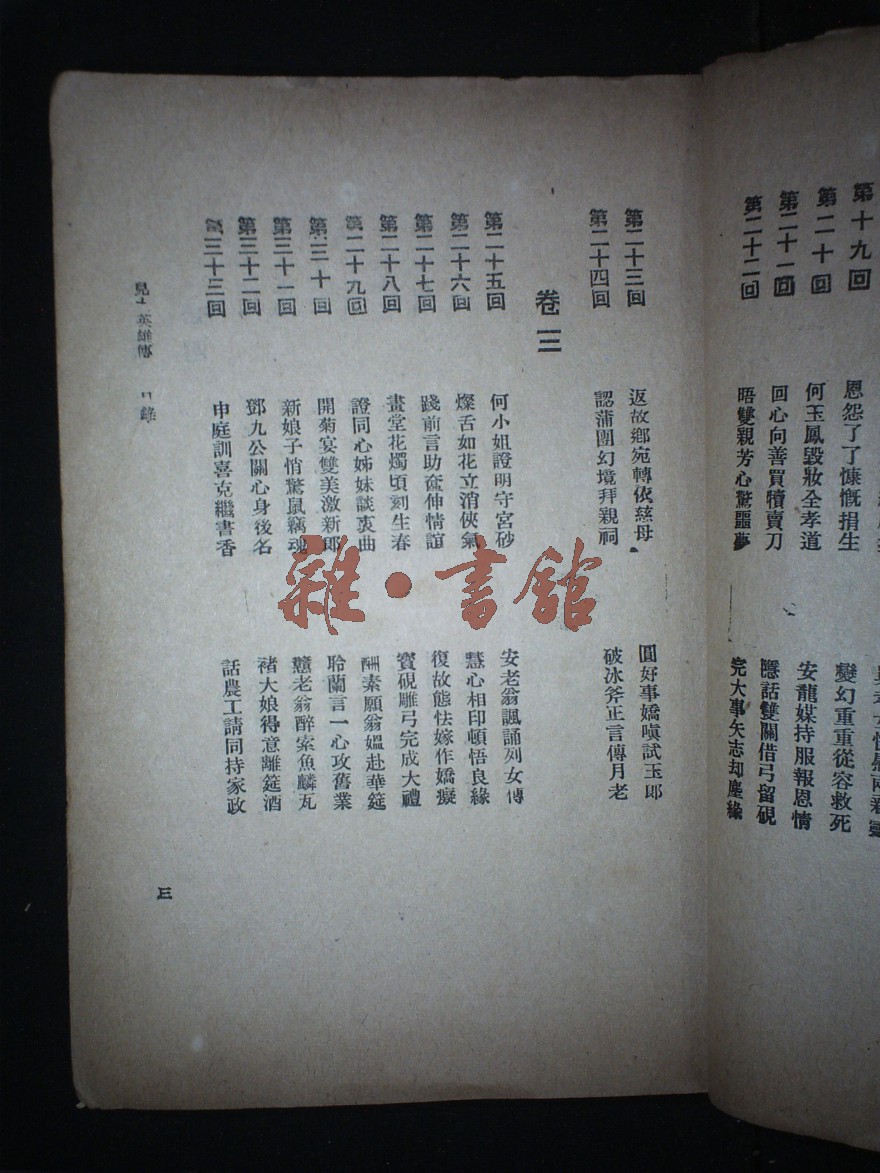 第十九回 恩怨了了慷慨捐生 變幻重重從容救死
第二十回 何玉鳳毀妝全孝道 安龍媒持服報恩情
第二十一回 回心向善買犢賣刀 隱話雙關借弓留硯
第二十二回 晤雙親芳心驚噩夢 完大事矢志却塵緣
第二十三回 返故鄉宛轉依慈母 圓好事嬌嗔試玉郎
第二十四回 認蒲團幻境拜親祠 破冰斧正言傳月老
卷三
第二十五回 何小姐證明守宮砂 安老翁諷誦列女傳
第二十六回 燦舌如花立消俠氣 慧心相印頓悟良緣
第二十七回 踐前言助奩伸情誼 復故態怯嫁作嬌癡
第二十八回 畫堂花燭頃刻生春 寶硯雕弓完成大禮
第二十九回 證同心姊妹談衷曲 酬素願翁媼赴華筵
第三十回 開菊宴雙美激新郎 聆蘭言一心攻舊業
第三十一回 新娘子悄驚鼠竊魂 戇老翁醉索魚鱗瓦
第三十二回 鄧九公關心身後名 褚大娘得意離筵酒
第三十三回 申庭訓喜克繼書香 話農工請同持家政
英雄傳 錄
三
雜·書館